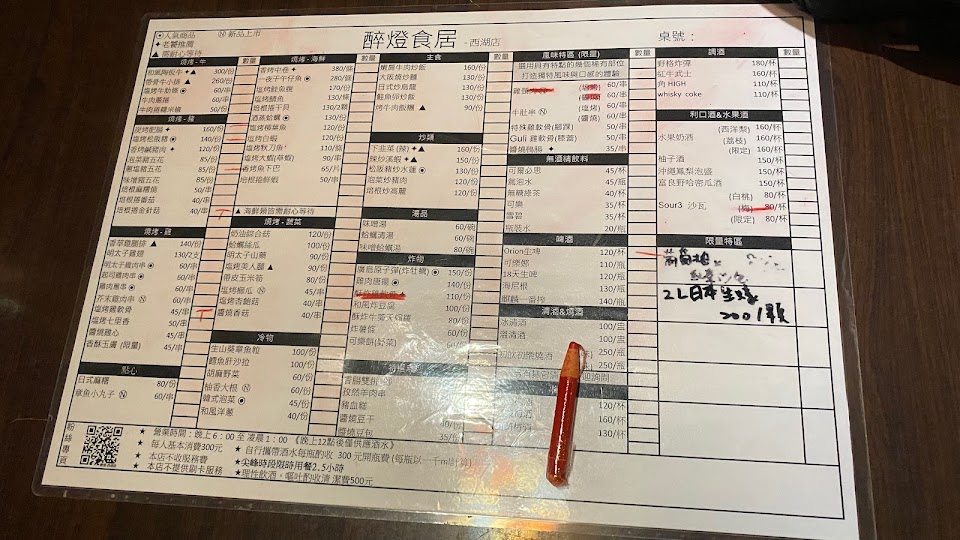 人氣商品 Ⓝ 新品上市
✦老饕推薦
▲ 需耐心等待
醉燈食居 -西湖店
桌號:
燒烤-牛 數量
和風胸板牛✦▲ 300/份
帶骨牛小排▲ 260/份
塩烤牛肋條 60/串
牛肉蔥捲 60/串
60/份
燒烤-豬
160/份
塩烤松阪豬 140/份
香烤鹹豬肉✦ 120/份
泡菜豬五花 85/份
蔥塩豬五花 85/份
味噌豬五花 85/份
培根麻糬燒 50/串
培根捲番茄 40/串
培根捲金針菇 40/串
燒烤-雞
香草雞腿排▲ 140/份
明太子雞翅 130/2支
明太子雞肉串 60/串
起司雞肉串 60/串
雞肉蔥串 60/串
芥末雞肉串 Ⓝ 60/串
塩烤雞軟骨 45/串
塩烤七里香 50/串
醬燒雞心 45/串
香酥玉膚 (限量) 45/串
點心
日式麻糬 80/份
章魚小丸子 Ⓝ 60/份
燒烤-海鮮 數量
香烤中卷✦ 380/隻
一夜干午仔魚 280/條
塩烤鮭魚 170/份
塩烤鯖魚 130/條
培根捲干貝 130/2顆
酒蒸蛤蠣 130/份
塩烤柳葉魚 120/份
塩烤白蝦 120/份
塩烤秋刀魚 110/條
塩烤大蝦(單蝦) 90/串
香烤魚下巴 65/片
培根捲鮮蝦 50/串
▲海鮮類皆需耐心等待
燒烤-蔬菜
奶油綜合菇 120/份
蛤蠣絲瓜 100/份
明太子山藥 90/份
塩烤美人腿▲ 90/份
帶皮玉米筍 60/份
塩烤櫛瓜 Ⓝ 45/份
塩烤杏鮑菇 40/份
醬燒香菇 40/串
冷物
生山葵章魚粒 100/份
鱈魚肝沙拉 100/份
胡麻野菜 60/份
柚香大根 Ⓝ 60/份
韓式泡菜 45/份
和風洋蔥 40/份
主食 數量
160/份
大阪燒炒麵 130/份
日式炒烏龍 130/份
鮭魚卵炒飯 130/份
烤牛肉飯糰▲ 90/份
炒類
下韭菜(辣)✦▲ 160/份
辣炒溪蝦✦▲ 150/份
松阪豬炒水蓮 130/份
泡菜炒豬肉 120/份
培根炒高麗 120/份
湯品
味噌湯 60/碗
蛤蠣清湯 60/碗
味噌蛤蠣湯 80/碗
炸物
廣島原子彈(炸牡蠣) 150/份
雞肉唐揚 140/份
110/份
和風炸豆腐 100/份
80/份
炸薯條 60/份
60/份
50/份
孜然牛肉串 50/串
豬血糕 40/份
醬燒豆干 40/份
醬燒豆包 35/份
風味特區(限量) 數量
選用具有特點的幾個稀有部位
打造獨特風味與口感的體驗
60/串
60/串
牛肚串 Ⓝ (塩烤) 60/串
(醬燒) 60/串
特殊雞軟骨(腳踝) 50/串
Guli 雞軟骨(膝蓋) 50/串
醬燒鴨腸✦ 35/串
無酒精飲料
可爾必思 45/杯
蔓泡水 45/瓶
無糖綠茶 40/杯
可樂 35/杯
雪碧 35/杯
瓶裝水 20/瓶
啤酒
Orion生啤 120/杯
可樂娜 110/瓶
18天生啤 120/瓶
海尼根 130/瓶
麒麟一番搾 140/瓶
清酒&燒酒
冰清酒 100/盅
溫清酒 100/盅
初飲初樂燒酒 250/瓶
200/瓶
120/杯
160/杯
130/杯
調酒 數量
野格炸彈 180/杯
紅牛武士 160/杯
角 HIGH 110/杯
whisky coke 110/杯
利口酒&水果酒
水果奶酒 (西洋梨) 160/杯
(荔枝) 160/杯
(限定) 160/杯
柚子酒 150/杯
沖繩鳳梨泡盛 150/杯
富良野哈密瓜酒 150/杯
Sour3 沙瓦 (白桃) 80/杯
(梅) 80/杯
(限定) 80/杯
限量特區
2L日本生蠔
200/顆
粉絲專頁
★ 營業時間：晚上6：00 至 凌晨1：00 《晚上12點後僅供應酒水》
★ 每人基本消費300元 ★ 自行攜帶酒水每瓶酌收 300 元開瓶費 (每瓶以一千ml計算)
★ 本店不收服務費 ★尖峰時段限時用餐2.5小時
★ 本店不提供刷卡服務 ★理性飲酒，嘔吐酌收清潔費500元